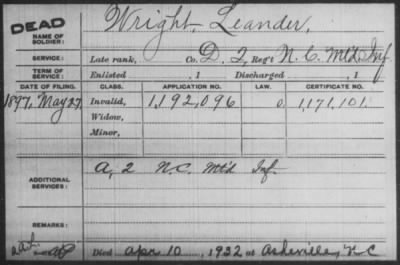 DEAD
NAME OF SOLDIER: Wright, Leander,
SERVICE: Late rank, Co. D. 2, Reg't N. C. Mtd. Inf.
TERM OF SERVICE: Enlisted , 1 Discharged , 1
DATE OF FILING. CLASS. APPLICATION NO. LAW. CERTIFICATE NO.
1897, May 27. Invalid, 1,192,096 1,171,101.
Widow,
Minor,
ADDITIONAL SERVICES: A, 2 N. C. Mt'd Inf.
REMARKS:
Died Apr 10, 1932 at Asheville, N C